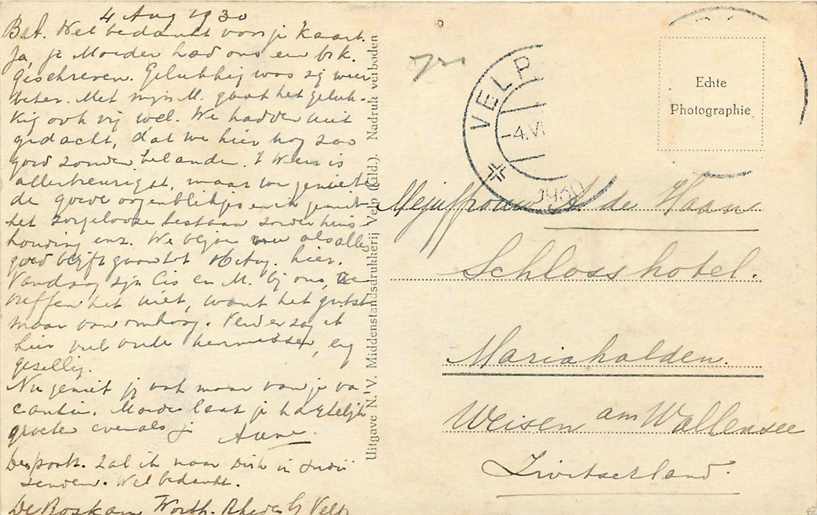 4 Aug 1930
Bet. Wel bedankt voor je kaart.
Ja, je Moeder had ons een brk.
geschreven. Gelukkig was zij weer
beter. Met mijn M. gaat het geluk-
kig ook vrij wel. We hadden niet
gedacht, dat we hier nog zoo
goed zonder belanden. 't Weer is
allertreurigst, maar we genieten
de goede oogenblikjes en
het zorgelooze bestaan zonder huis
houding enz. We als alles
goed blijft Aug. hier.
Vandaag zijn Cis en M. bij ons, ze
treffen het niet, want het gutst
maar van omhoog. Verder zag ik
hier vele oude kennissen, erg
gezellig.
Nu geniet jij ook maar van je va
cantie. Moeder laat je hartelijk
groeten evenals je
Desportk. zal ik naar Dirk in Indië
zenden. Wel bedankt.
De Boskamp Worth. Rheden G Velp
Uitgave N. V. Middenstandsdrukkerij Velp (Gld.). Nadruk verboden
VELP
4.VI
1930
Echte
Photographie
Mejuffrouw de Haan
Schlosshotel.
Mariahalden.
Weisen am Wallensee
Zwitserland.